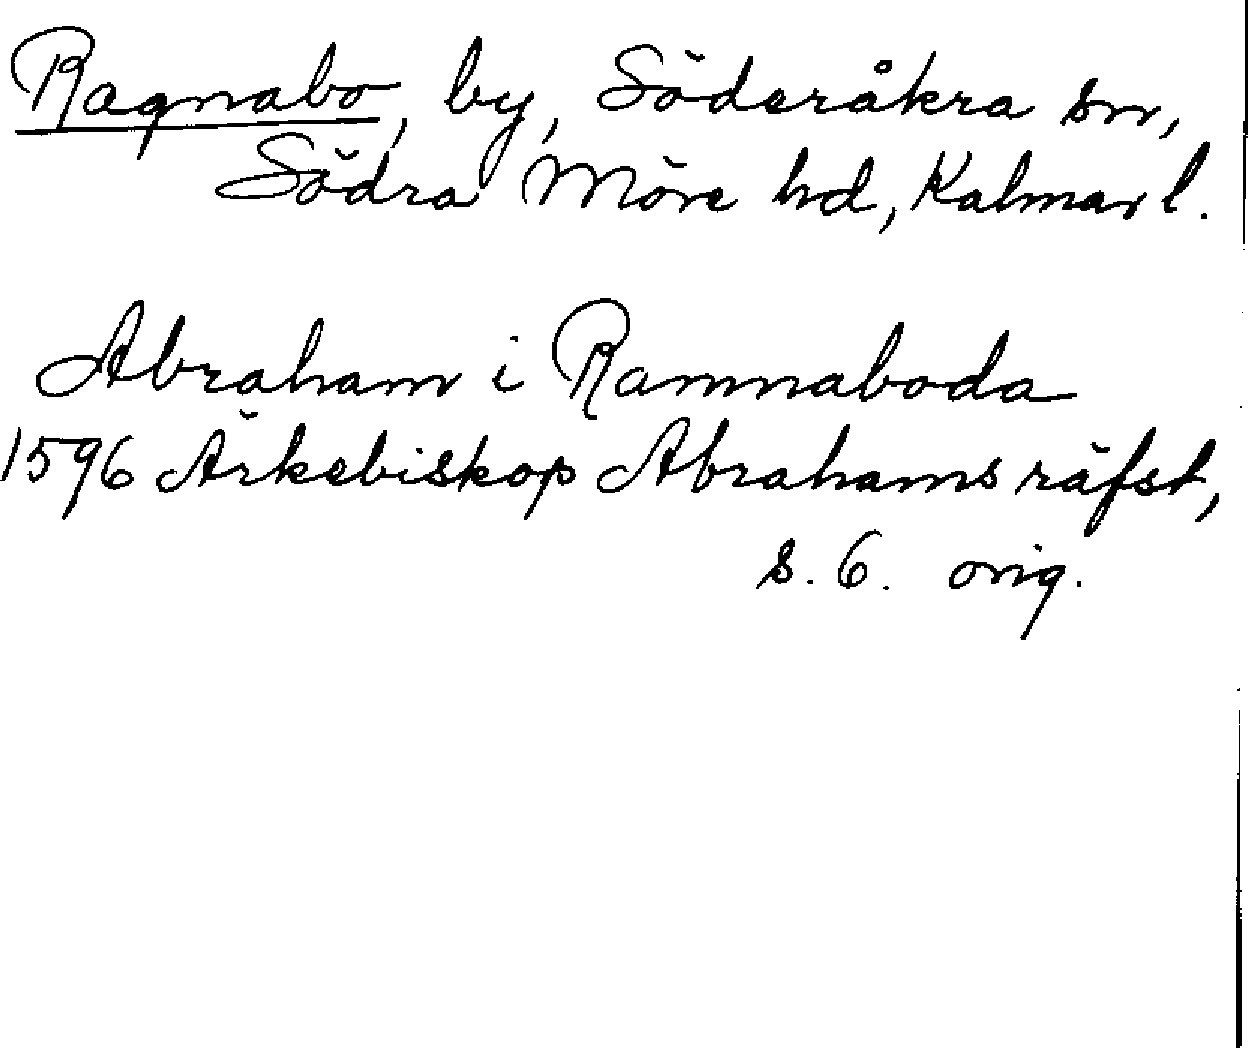 Ragnabo, by, Söderåkra sn,
Södra Möre hd, Kalmar l.
Abraham i Ramnaboda
1596 Ärkebiskop Abrahams räfst,
s. 6. orig.